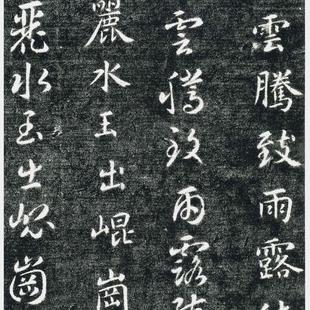 雲騰致雨露
雲騰致雨露
麗水玉出崐崗
麗水玉出崐崗